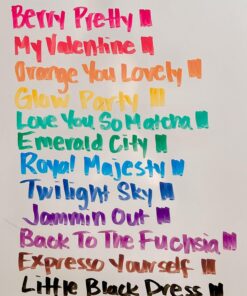 Berry Pretty
My Valentine
Orange You Lovely
Glow Party
Love You So Matcha
Emerald City
Royal Majesty
Twilight Sky
Jammin Out
Back To The Fuchsia
Expresso Yourself
Little Black Dress